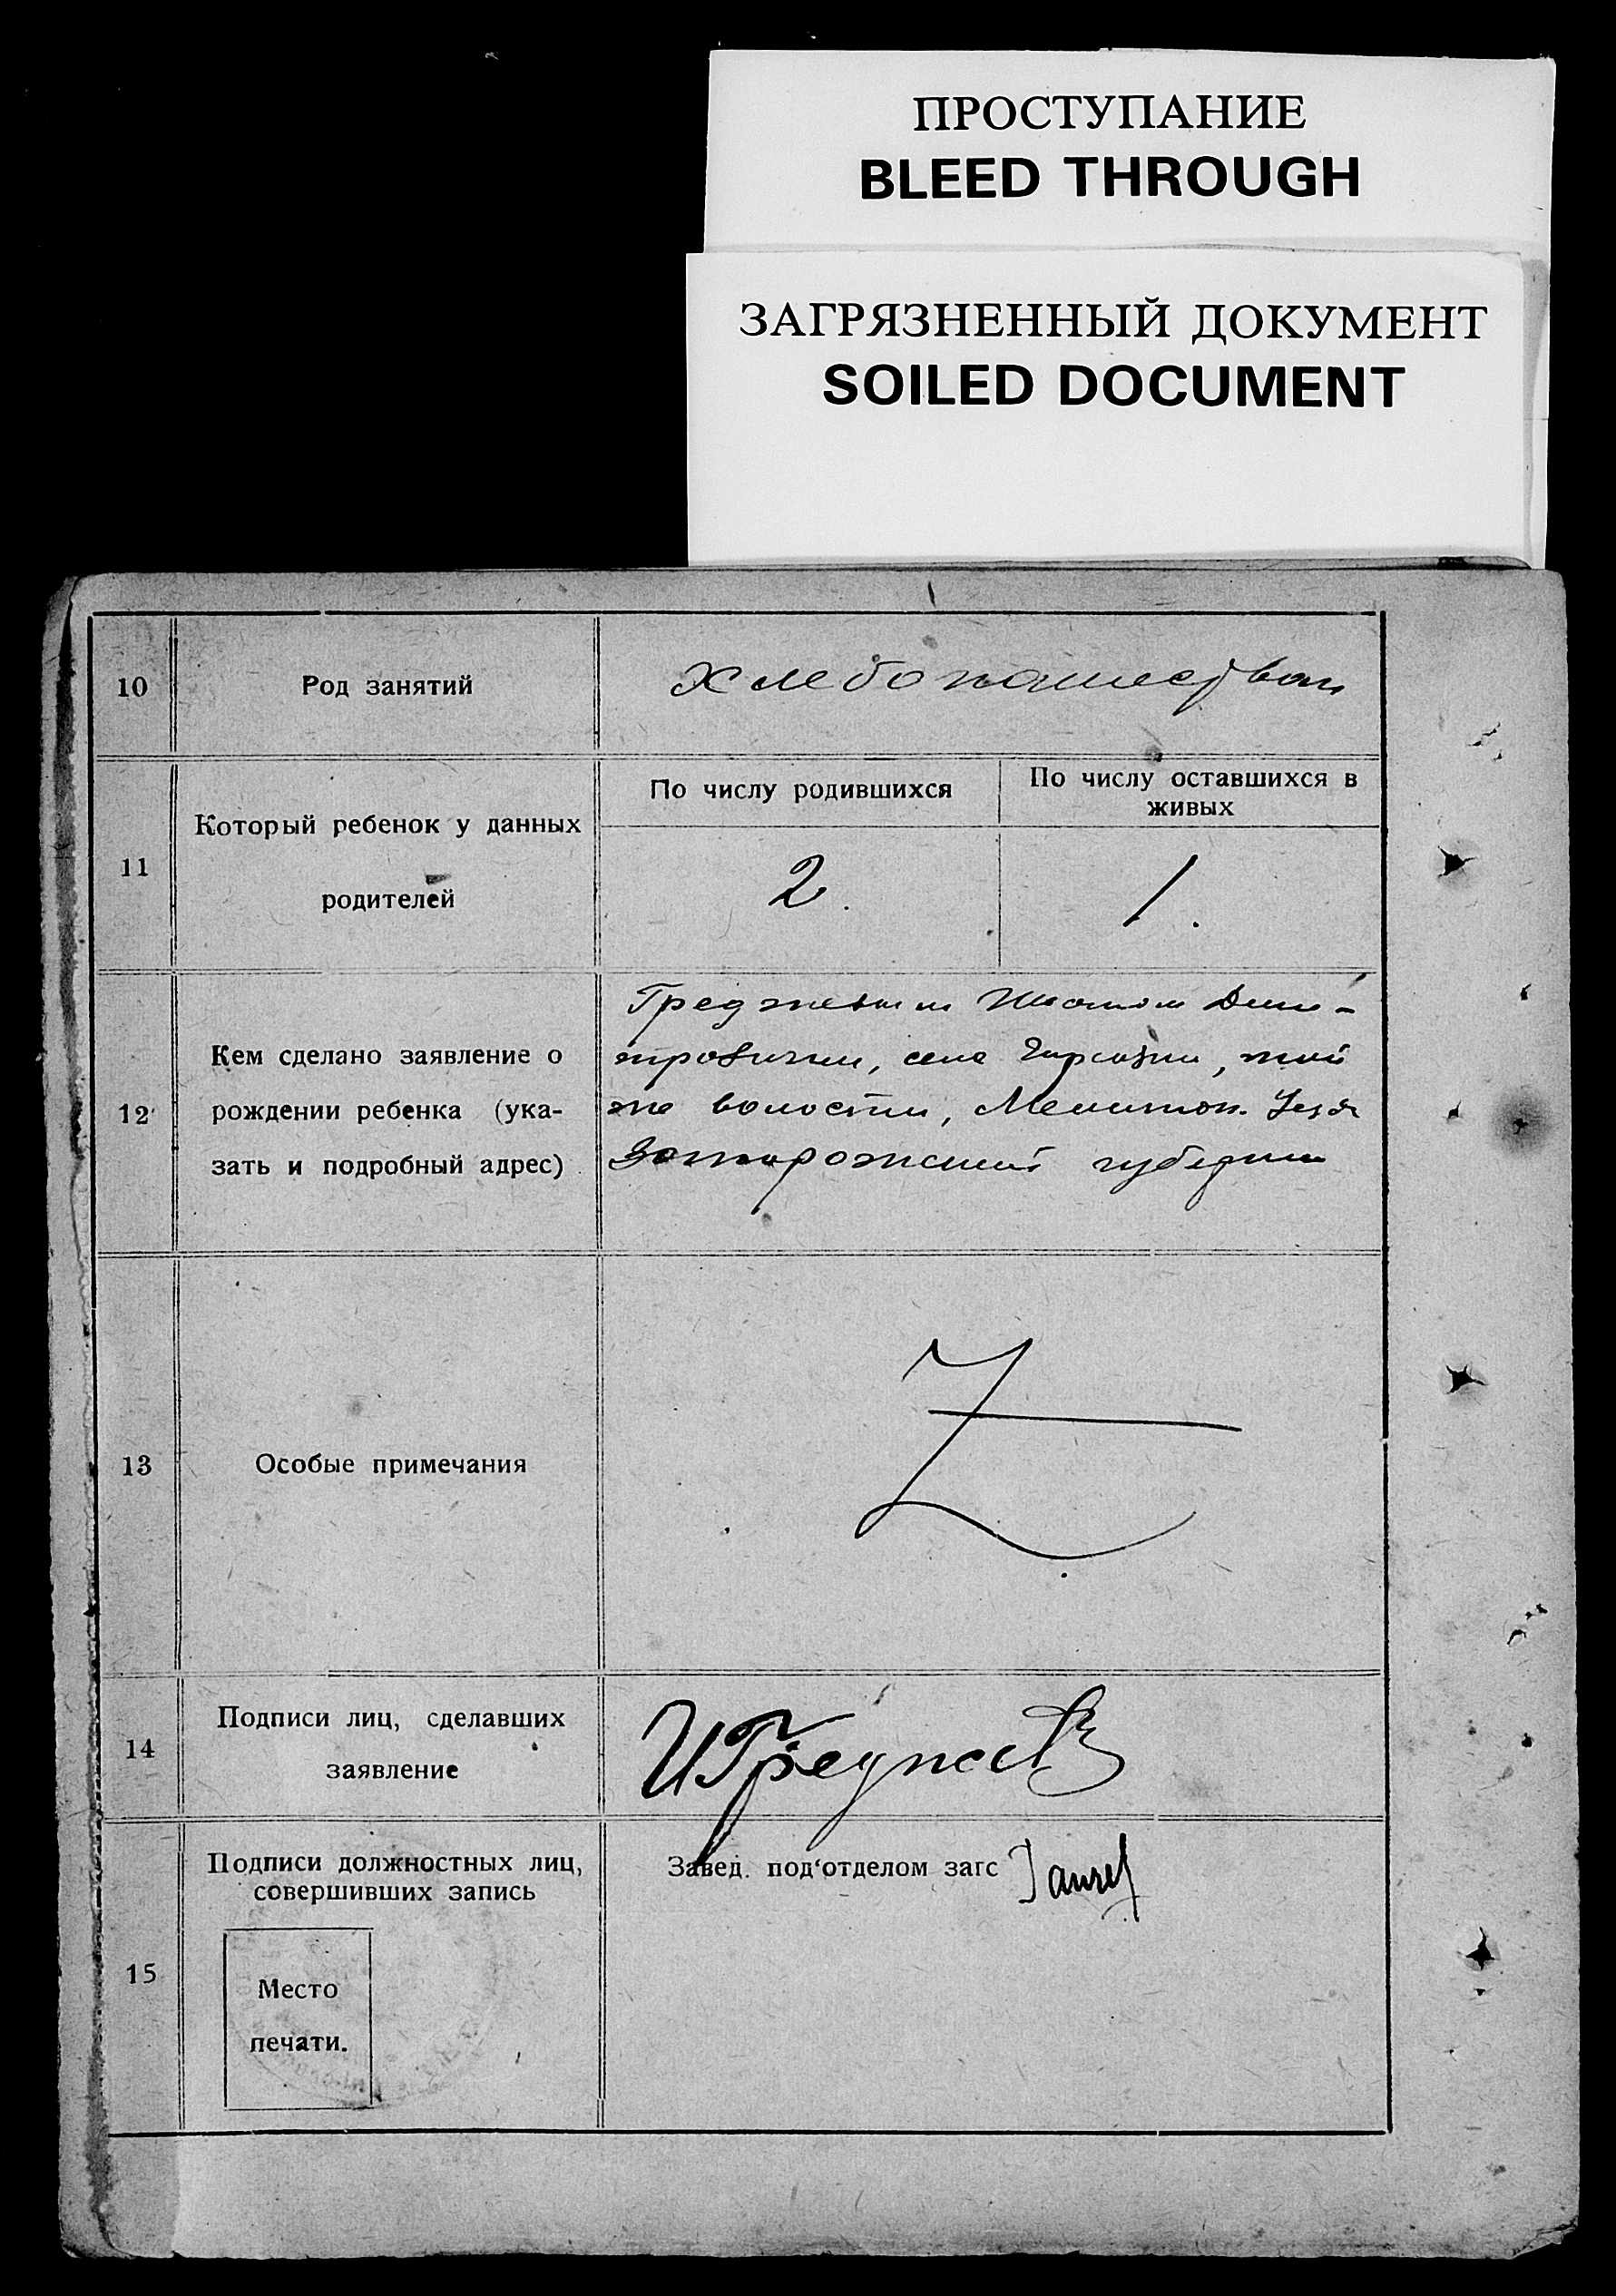 ПРОСТУПАНИЕ
BLEED THROUGH
ЗАГРЯЗНЕННЫЙ ДОКУМЕНТ
SOILED DOCUMENT
10
Род занятий
Хлебопашество
11
Который ребенок у данных
родителей
По числу родившихся
По числу оставшихся в
живых
2.
1.
12
Кем сделано заявление о
рождении ребенка (ука-
зать и подробный адрес)
Греджевым Дми-
тровичем, села той
же волости, Мелитоп. Уезда
Запорожской губернии
13
Особые примечания
Z
14
Подписи лиц, сделавших
заявление
ИГреджевъ
15
Подписи должностных лиц,
совершивших запись
Завед. под'отделом загс
Место
печати.